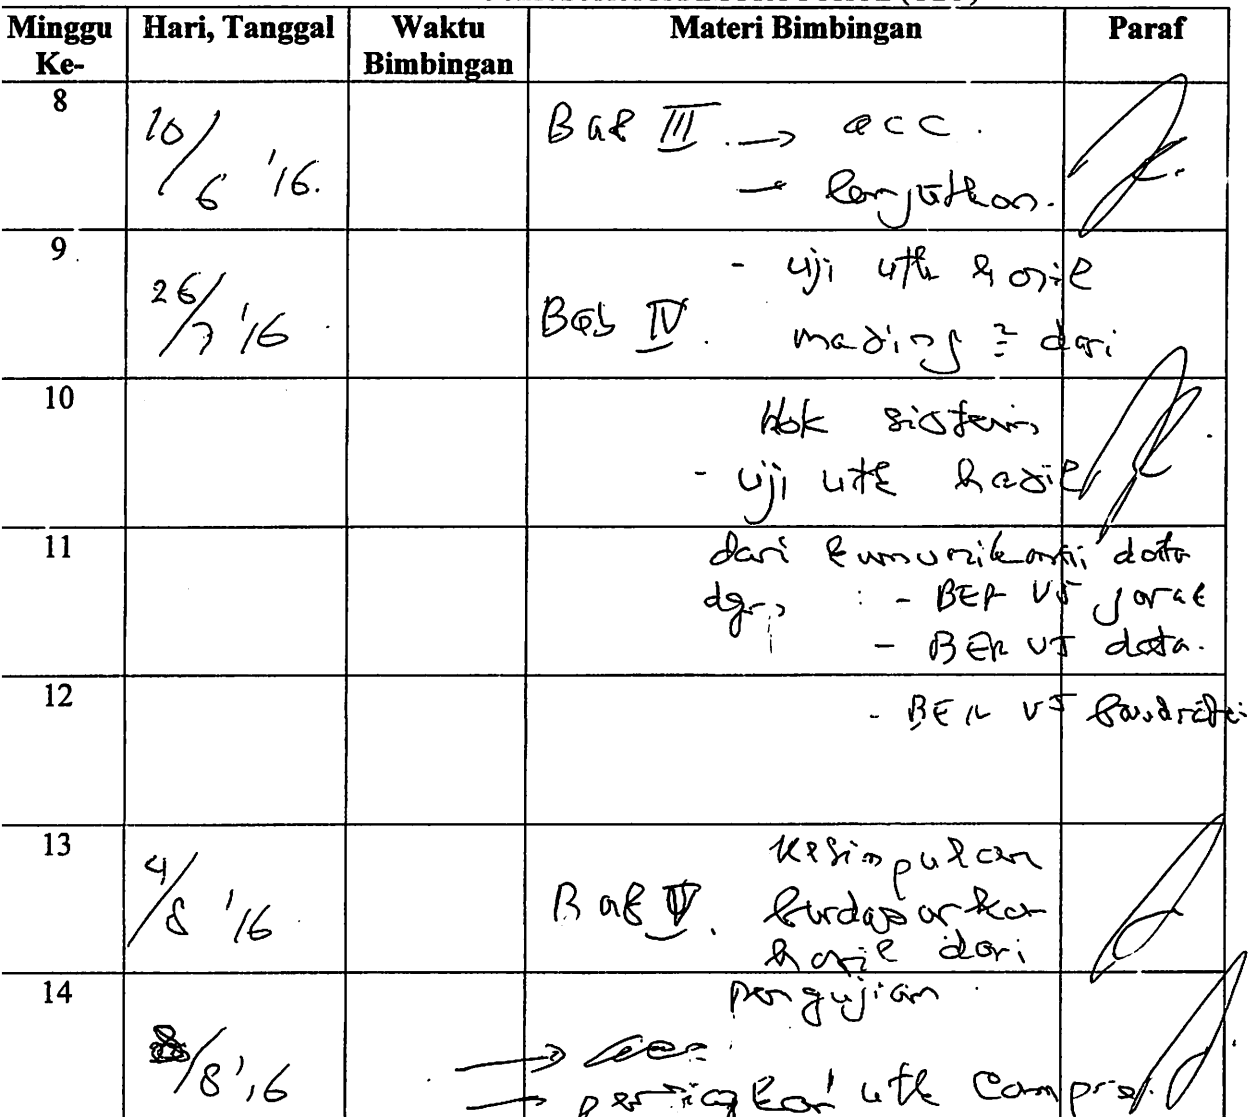 Minggu Ke- Hari, Tanggal Waktu Bimbingan Materi Bimbingan Paraf
8
10/6 '16. Bab III. → acc.
→ lanjutkan.
9
- uji utk hasil
26/7 '16 Bab IV. mading² dari
10
blok sistem
- uji utk hasil
11
dari komunikasi data
dgn : - BER VS jarak
- BER VS data.
12
- BER VS baudrate
13
4/8 '16 Bab V. Kesimpulan
berdasarkan
hasil dari
14
pengujian
/8 '16 → acc
→ persiapkan utk compre.